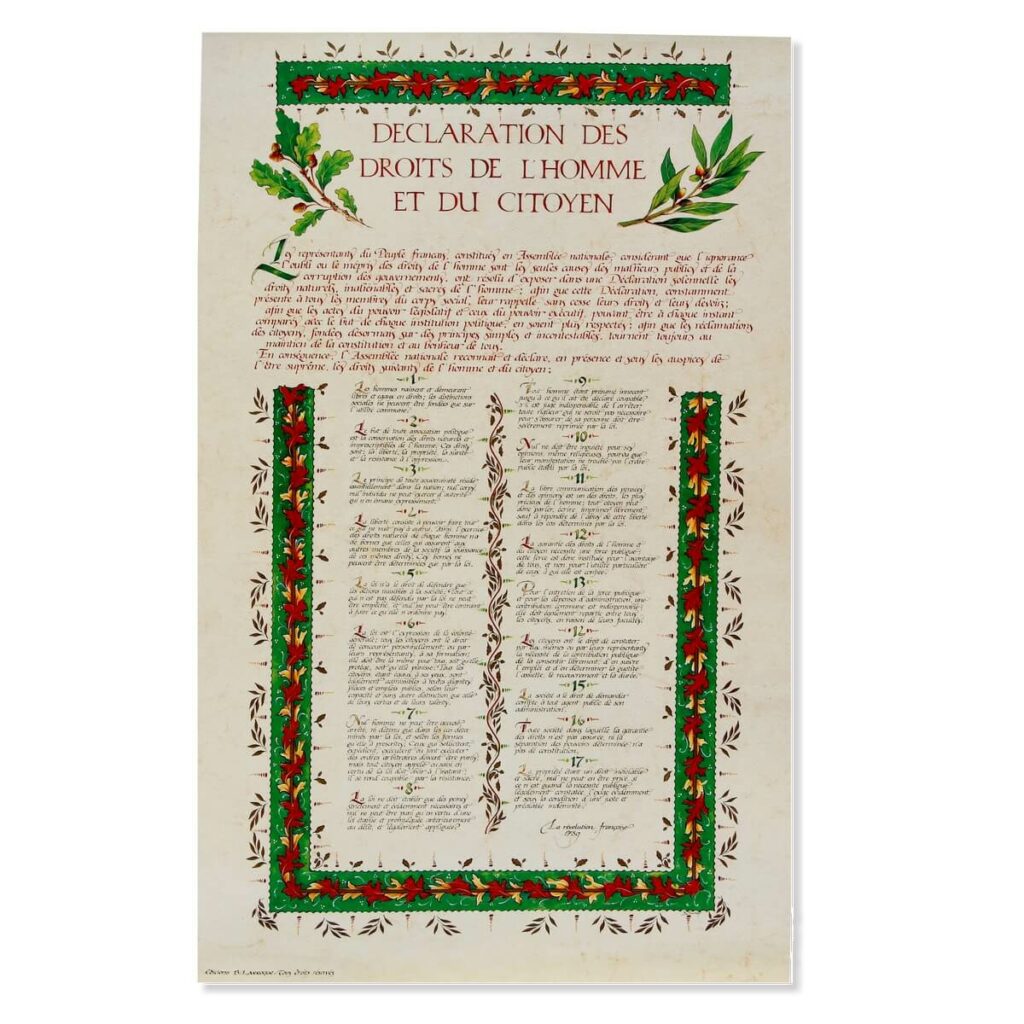 DECLARATION DES
DROITS DE L'HOMME
ET DU CITOYEN
Les représentants du Peuple français, constitués en Assemblée nationale, considérant que l'ignorance
l'oubli ou le mépris des droits de l'homme sont les seules causes des malheurs publics et de la
corruption des gouvernements, ont résolu d'exposer dans une Déclaration solennelle les
droits naturels, inaliénables et sacrés de l'homme ; afin que cette Déclaration, constamment
présente à tous les membres du corps social, leur rappelle sans cesse leurs droits et leurs devoirs;
afin que les actes du pouvoir législatif et ceux du pouvoir exécutif, pouvant être à chaque instant
comparés avec le but de chaque institution politique, en soient plus respectés ; afin que les réclamations
des citoyens, fondées désormais sur des principes simples et incontestables, tournent toujours au
maintien de la constitution et au bonheur de tous.
En conséquence, l'Assemblée nationale reconnaît et déclare, en présence et sous les auspices de
l'être suprême, les droits suivants de l'homme et du citoyen :
1
Les hommes naissent et demeurent
libres et égaux en droits ; les distinctions
sociales ne peuvent être fondées que sur
l'utilité commune.
2
Le but de toute association politique
est la conservation des droits naturels et
imprescriptibles de l'homme. Ces droits
sont : la liberté, la propriété, la sûreté
et la résistance à l'oppression.
3
Le principe de toute souveraineté réside
essentiellement dans la nation ; nul corps
nul individu ne peut exercer d'autorité
qui n'en émane expressément.
4
La liberté consiste à pouvoir faire tout
ce qui ne nuit pas à autrui. Ainsi, l'exercice
des droits naturels de chaque homme n'a
de bornes que celles qui assurent aux
autres membres de la société la jouissance
de ces mêmes droits. Ces bornes ne
peuvent être déterminées que par la loi.
5
La loi n'a le droit de défendre que
les actions nuisibles à la société. Tout ce
qui n'est pas défendu par la loi ne peut
être empêché, et nul ne peut être contraint
à faire ce qu'elle n'ordonne pas.
6
La loi est l'expression de la volonté
générale ; tous les citoyens ont le droit
de concourir personnellement, ou par
leurs représentants, à sa formation;
elle doit être la même pour tous, soit qu'elle
protège, soit qu'elle punisse. Tous les
citoyens, étant égaux à ses yeux, sont
également admissibles à toutes dignités
places et emplois publics, selon leur
capacité et sans autre distinction que celle
de leurs vertus et de leurs talents.
7
Nul homme ne peut être accusé,
arrêté, ni détenu que dans les cas déter
minés par la loi, et selon les formes
qu'elle a prescrites. Ceux qui sollicitent,
expédient, exécutent ou font exécuter
des ordres arbitraires doivent être punis;
mais tout citoyen appelé ou saisi en
vertu de la loi doit obéir à l'instant:
il se rend coupable par la résistance.
8
La loi ne doit établir que des peines
strictement et évidemment nécessaires, et
nul ne peut être puni qu'en vertu d'une
loi établie et promulguée antérieurement
au délit, et légalement appliquée.
9
Tout homme étant présumé innocent
jusqu'à ce qu'il ait été déclaré coupable,
s'il est jugé indispensable de l'arrêter,
toute rigueur qui ne serait pas nécessaire
pour s'assurer de sa personne doit être
sévèrement réprimée par la loi.
10
Nul ne doit être inquiété pour ses
opinions, même religieuses, pourvu que
leur manifestation ne trouble pas l'ordre
public établi par la loi.
11
La libre communication des pensées
et des opinions est un des droits les plus
précieux de l'homme ; tout citoyen peut
donc parler, écrire, imprimer librement,
sauf à répondre de l'abus de cette liberté
dans les cas déterminés par la loi.
12
La garantie des droits de l'homme et
du citoyen nécessite une force publique ;
cette force est donc instituée pour l'avantage
de tous, et non pour l'utilité particulière
de ceux à qui elle est confiée.
13
Pour l'entretien de la force publique
et pour les dépenses d'administration, une
contribution commune est indispensable;
elle doit être également répartie entre tous
les citoyens, en raison de leurs facultés.
14
Les citoyens ont le droit de constater,
par eux mêmes ou par leurs représentants
la nécessité de la contribution publique
de la consentir librement, d'en suivre
l'emploi et d'en déterminer la quotité
l'assiette, le recouvrement et la durée.
15
La société a le droit de demander
compte à tout agent public de son
administration.
16
Toute société dans laquelle la garantie
des droits n'est pas assurée, ni la
séparation des pouvoirs déterminée n'a
pas de constitution.
17
La propriété étant un droit inviolable
et sacré, nul ne peut en être privé, si
ce n'est quand la nécessité publique
légalement constatée, l'exige évidemment
et sous la condition d'une juste et
préalable indemnité.
La révolution française
1789
Editions B. Tous droits réservés